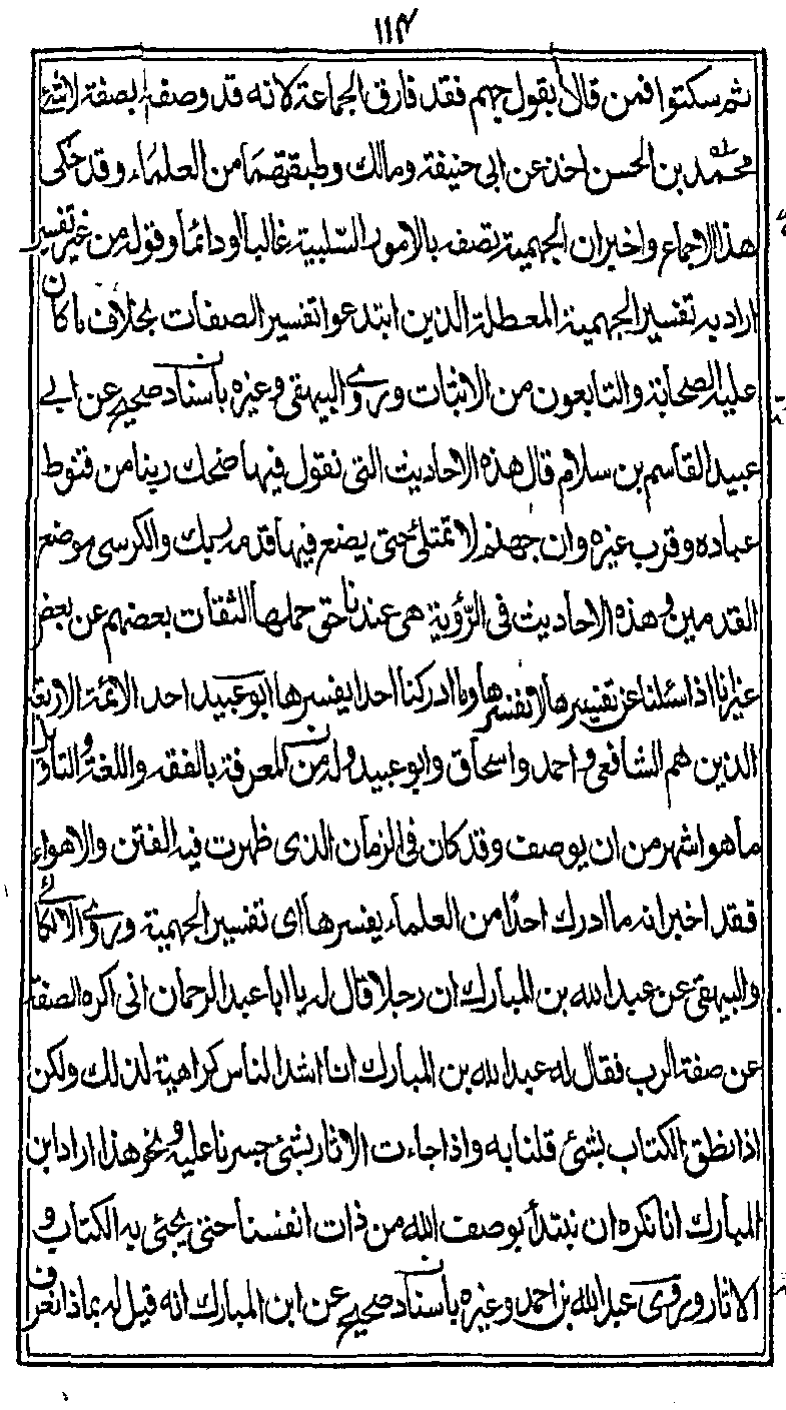 ١١٤
ثم سكتوا فمن قال بقول جهم فقد فارق الجماعة لانه قد وصفه بصفة لاشئ
محمد بن الحسن اخذ عن ابي حنيفة ومالك وطبقتهما من العلماء وقد حكى
هذا الاجماع واخبر ان الجهمية تصفه بالامور السلبية غالبا او دائما وقوله من غير تفسير
اراد به تفسير الجهمية المعطلة الذين ابتدعوا تفسير الصفات بخلاف ما كان
عليه الصحابة والتابعون من الاثبات وروى البيهقى وغيره باسناد صحيح عن ابى
عبيد القاسم بن سلام قال هذه الاحاديث التى نقول فيها ضحك ربنا من قنوط
عباده وقرب غيره وان جهنم لا تمتلئ حتى يضع فيها قدمه ربك والكرسى موضع
القدمين وهذه الاحاديث فى الرؤية هى عندنا حق حملها الثقات بعضهم عن بعض
غير انا اذا سئلنا عن تفسيرها لا نفسرها وما ادركنا احدا يفسرها ابو عبيد احد الائمة الاربعة
الذين هم الشافعى واحمد واسحاق وابو عبيد وله من المعرفة بالفقه واللغة والتاويل
ما هو اشهر من ان يوصف وقد كان فى الزمان الذى ظهرت فيه الفتن والاهواء
فقد اخبر انه ما ادرك احدا من العلماء يفسرها اى تفسير الجهمية وروى الالكائى
والبيهقى عن عبد الله بن المبارك ان رجلا قال له يا ابا عبد الرحمان انى اكره الصفة
عن صفة الرب فقال له عبد الله بن المبارك انا اشد الناس كراهية لذلك ولكن
اذا نطق الكتاب بشئ قلنا به واذا جاءت الاثار بشئ جسرنا عليه ونحو هذا اراد ابن
المبارك انا نكره ان نبتدأ بوصف الله من ذات انفسنا حتى يجئى به الكتاب و
الاثار وروى عبد الله بن احمد وغيره باسناد صحيح عن ابن المبارك انه قيل له بماذا نعرف